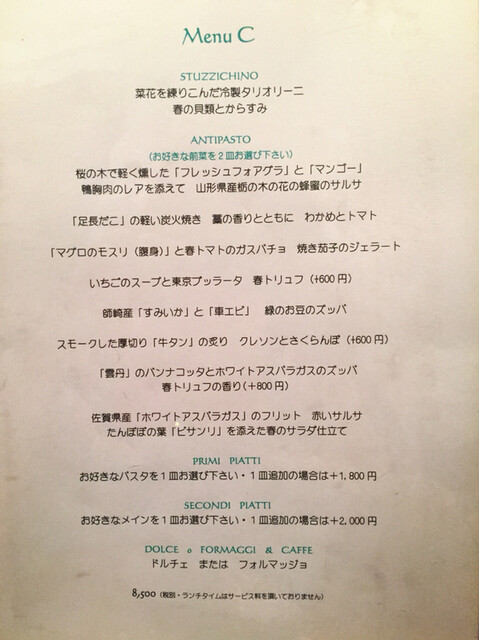 Menu C
STUZZICHINO
菜花を練りこんだ冷製タリオリーニ
春の貝類とからすみ
ANTIPASTO
(お好きな前菜を2皿お選び下さい)
桜の木で軽く燻した「フレッシュフォアグラ」と「マンゴー」
鴨胸肉のレアを添えて 山形県産栃の木の花の蜂蜜のサルサ
「足長だこ」の軽い炭火焼き 藁の香りとともに わかめとトマト
「マグロのモスリ(腹身)」と春トマトのガスパチョ 焼き茄子のジェラート
いちごのスープと東京ブッラータ 春トリュフ(+600円)
師崎産「すみいか」と「車エビ」 緑のお豆のズッパ
スモークした厚切り「牛タン」の炙り クレソンとさくらんぼ(+600円)
「雲丹」のパンナコッタとホワイトアスパラガスのズッパ
春トリュフの香り(+800円)
佐賀県産「ホワイトアスパラガス」のフリット 赤いサルサ
たんぽぽの葉「ピサンリ」を添えた春のサラダ仕立て
PRIMI PIATTI
お好きなパスタを1皿お選び下さい・1皿追加の場合は+1,800円
SECONDI PIATTI
お好きなメインを1皿お選び下さい・1皿追加の場合は+2,000円
DOLCE o FORMAGGI & CAFFE
ドルチェ または フォルマッジョ
8,500(税別・ランチタイムはサービス料を頂いておりません)